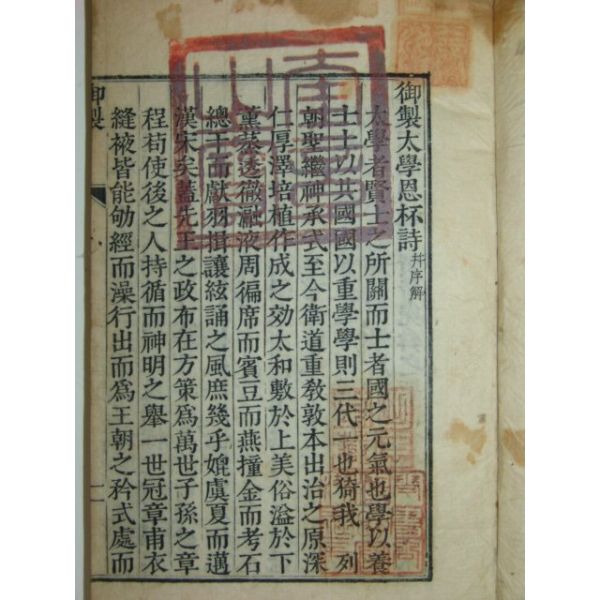 御製太學恩杯詩 幷序解
太學者賢士之所關而士者國之元氣也學以養
士士以共國國以重學學則三代一也猗我 列
朝聖繼神承式至今衛道重敎敦本出治之原深
仁厚澤培植作成之効太和敷於上美俗溢於下
薰蒸透徹瀜液周徧席而賓豆而燕撞金而考石
總王而獻羽揖讓絃誦之風庶幾乎媲虞夏而邁
漢宋矣蓋先王之政布在方策爲萬世子孫之章
程苟使後之人持循而神明之擧一世冠章甫衣
縫裧皆能劬經而澡行出而爲王朝之矜式處而
御製
一